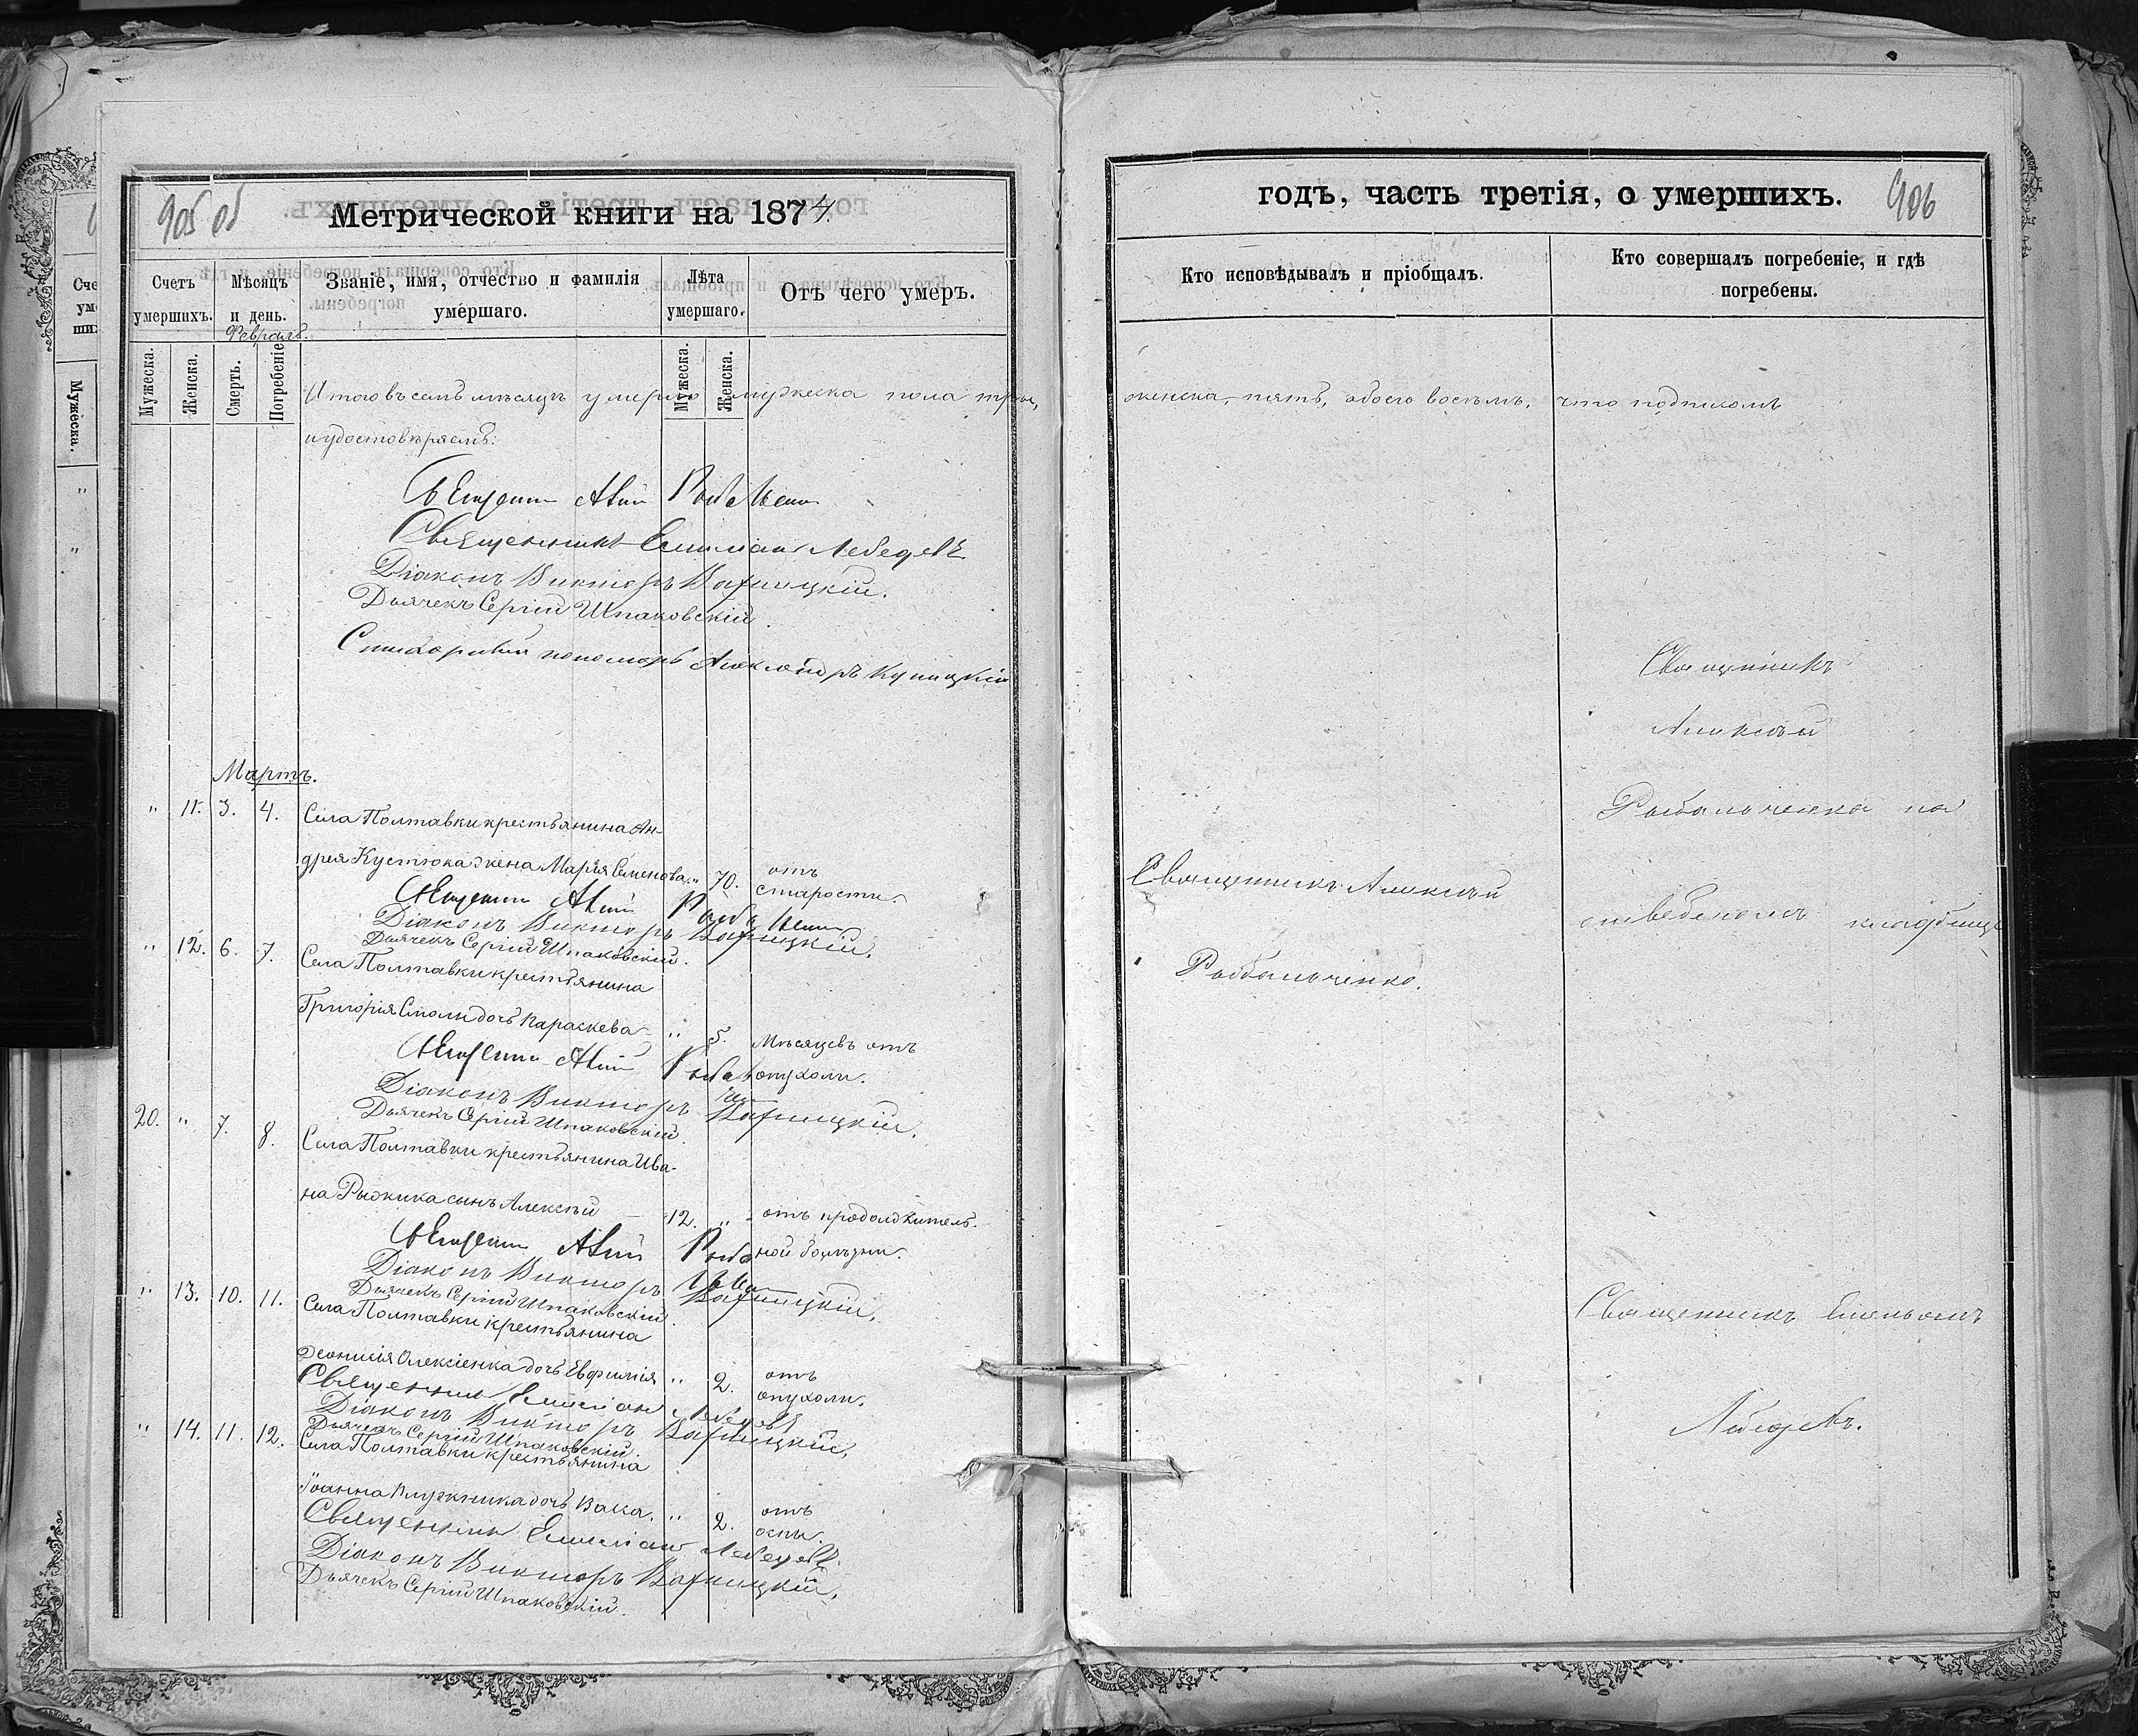 905 об
Метрической книги на 1874
Счетъ умершихъ.
Мѣсяцъ и день.
Званіе, имя, отчество и фамилія умершаго.
Лѣта умершаго.
Отъ чего умеръ.
Февраль.
Мужеска.
Женска.
Смерть.
Погребеніе
Мужеска.
Женска.
Итого въ семъ мѣсяцѣ умерло мужеска пола три,
и удостовѣряемъ:
Священникъ Емиліанъ Лебедевъ
Діаконъ Викторъ Варницкій.
Дьячекъ Сергій Шпаковскій.
пономарь Александръ
Мартъ.
" 11. 3. 4. Села Полтавки крестьянина Ан-
дрея Кустюка жена Марія Семенова. " 70. отъ
старости.
Діаконъ Викторъ Варницкій.
Дьячекъ Сергій Шпаковскій.
" 12. 6. 7. Села Полтавки крестьянина
Григорія Смоли дочь Параскева " 5. Мѣсяцевъ отъ
опухоли.
Діаконъ Викторъ Варницкій.
Дьячекъ Сергій Шпаковскій.
20. " 7. 8. Села Полтавки крестьянина Ива-
на Рыжика сынъ Алексѣй 12. " отъ продолжитель-
ной болѣзни.
Діаконъ Викторъ Варницкій.
Дьячекъ Сергій Шпаковскій.
" 13. 10. 11. Села Полтавки крестьянина
Діонисія Олексіенка дочь Евфимія " 2. отъ
опухоли.
Священник Емиліан Лебедевъ
Діаконъ Викторъ Варницкій.
Дьячекъ Сергій Шпаковскій.
" 14. 11. 12. Села Полтавки крестьянина
Іоанна дочь Васса. " 2. отъ
оспы.
Священник Емиліанъ Лебедевъ.
Діаконъ Викторъ Варницкій.
Дьячекъ Сергій Шпаковскій.
годъ, часть третія, о умершихъ.
906
Кто исповѣдывалъ и пріобщалъ.
Кто совершалъ погребеніе, и гдѣ
погребены.
женска, пять, обоего восемь, что подписомъ
Священникъ
Алексѣй
Рыбальченко на
Священникъ Алексѣй
отведенномъ кладбище
Рыбальченко.
Священникъ Емельянъ
Лебедевъ.